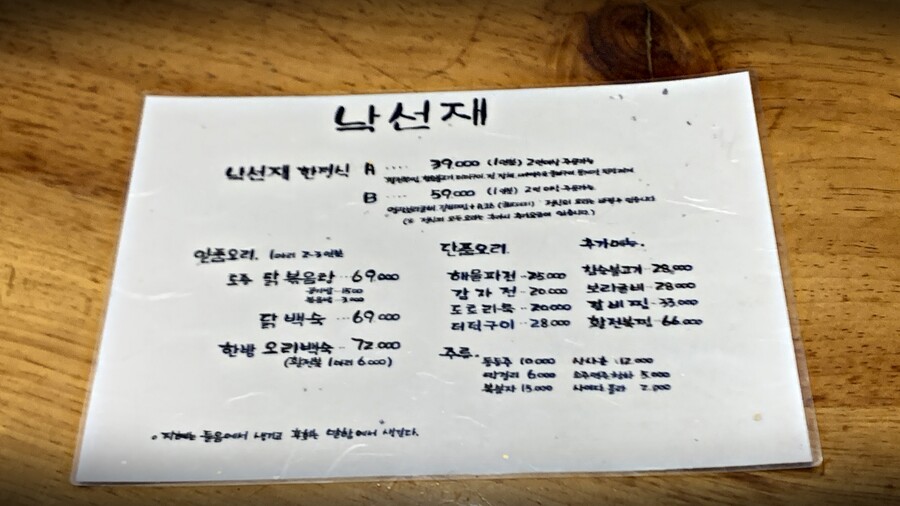 낙선재
낙선재 한정식 A .... 39.000 (1인분) 2인이상 주문가능
B .... 59.000 (1인분) 2인 이상 주문가능
일품요리. 1마리 2-3인분
토종 닭 볶음탕 ·· 69.000
공기밥 ·· 1500
볶음밥 ·· 3.000
닭 백숙 ··· 69.000
한방 오리백숙 ·· 72.000
(활전복 1마리 6.000)
단품요리.
해물파전 ·· 25.000
감자전 ·· 20.000
도토리묵 ·· 20.000
더덕구이 ·· 28.000
추가메뉴.
한순불고기 ·· 28.000
보리굴비 ·· 28.000
갈비찜 ·· 33.000
활전복찜 ·· 66.000
주류.
동동주 10.000
막걸리 6.000
복분자 15.000
산사춘 12.000
소주 맥주 청하 5.000
사이다 콜라 2.000
○ 지혜는 들음에서 생기고 후회는 말함에서 생긴다.